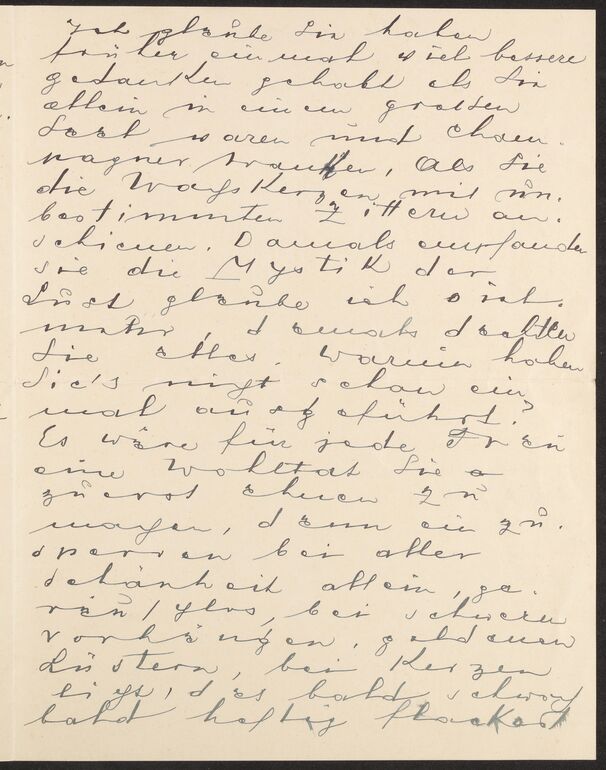 Ich glaube Sie haben
früher einmal viel bessere
gedanken gehabt als Sie
allein in einem großen
Saal waren und Cham-
pagner tranken, Als Sie
die Wakskerzen mit un-
bestimmten Zittern an-
schienen. Damals empfanden
sie die Mystik der
Lust glaube ich viel
mehr, damals dachten
Sie alles. Warum haben
Sie's nigt schon ein
mal ausgeführt?
Es wäre für jede Frau
eine Wohltat Sie
zuerst ahnen zu
magen, dann ein zu-
sperren bei aller
schönheit allein, ge-
räuschlos, bei schweren
vorhängen, goldenen
Lüstern, bei Kerzen
ligt, das bald schwach
bald heftig flackert